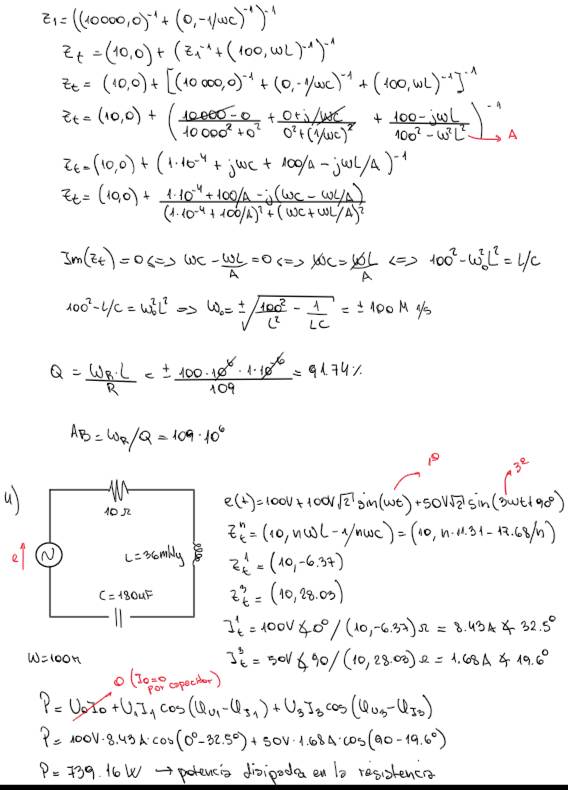 Z₁=((10000,0)⁻¹+(0,-1/wC)⁻¹)⁻¹
Zt =(10,0)+(Z₁⁻¹+(100,wL)⁻¹)⁻¹
Zt = (10,0)+[(10 000,0)⁻¹+(0,-1/wC)⁻¹ +(100,wL)⁻¹]⁻¹
Zt=(10,0) + ( (10000-0)/(10 000²+0²) + (0+j/wC)/(0²+(1/wC)²) + (100-jwL)/(100²-w²L²) )⁻¹ → A
Zt=(10,0)+(1·10⁻⁴+jwC+100/A-jwL/A)⁻¹
Zt=(10,0)+ (1·10⁻⁴+100/A-j(wC-wL/A))/((1·10⁻⁴+100/A)²+(wC+wL/A)²)
Im(Zt)=0<=> wC-wL/A=0<=> wC=wL/A <=> 100²-w₀²L²=L/C
100²-L/C=w₀²L² => w₀=±√(100²/L² - 1/LC) = ±100M 1/s
Q= wR·L/R = ±100·10⁶·1·10⁻⁶/109 = 91.74%
AB=wR/Q=109·10⁶
4)
10Ω
e
L=36mHy
C=180uF
w=100π
1º
3º
e(t)=100V+100V√2 sin(wt)+50V√2 sin(3wt+90°)
Ztⁿ=(10,nwL-1/nwC)=(10,n·11.31-17.68/n)
Zt¹=(10,-6.37)
Zt³=(10,28.03)
It¹=100V∡0°/(10,-6.37)Ω = 8.43A∡32.5°
It³=50V∡90/(10,28.03)Ω=1.68A∡19.6°
0 (I₀=0 por capacitor)
P=U₀I₀+U₁I₁cos(φU1-φI1)+U₃I₃cos(φU3-φI3)
P=100V·8.43A·cos(0°-32.5°)+50V·1.68A·cos(90-19.6°)
P=739.16W → potencia disipada en la resistencia